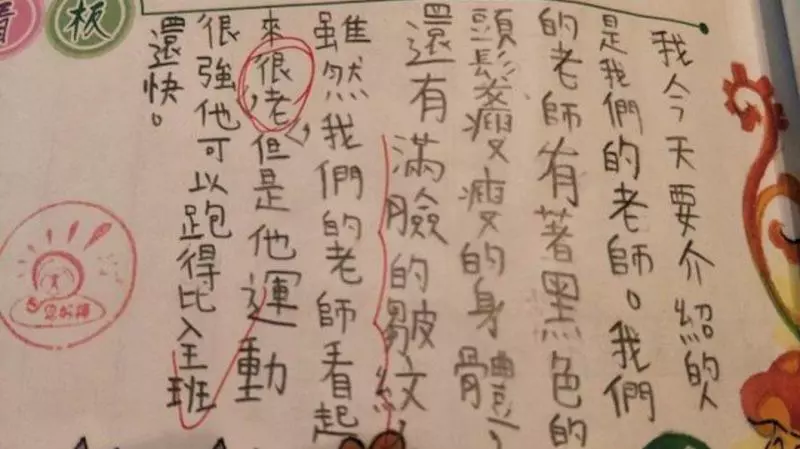 板
我今天要介紹的人
是我們的老師。我們
的老師有著黑色的
頭髮瘦瘦的身體,
還有滿臉的皺紋,
雖然我們的老師看起
來很老但是他運動
很強他可以跑得比全班
還快。